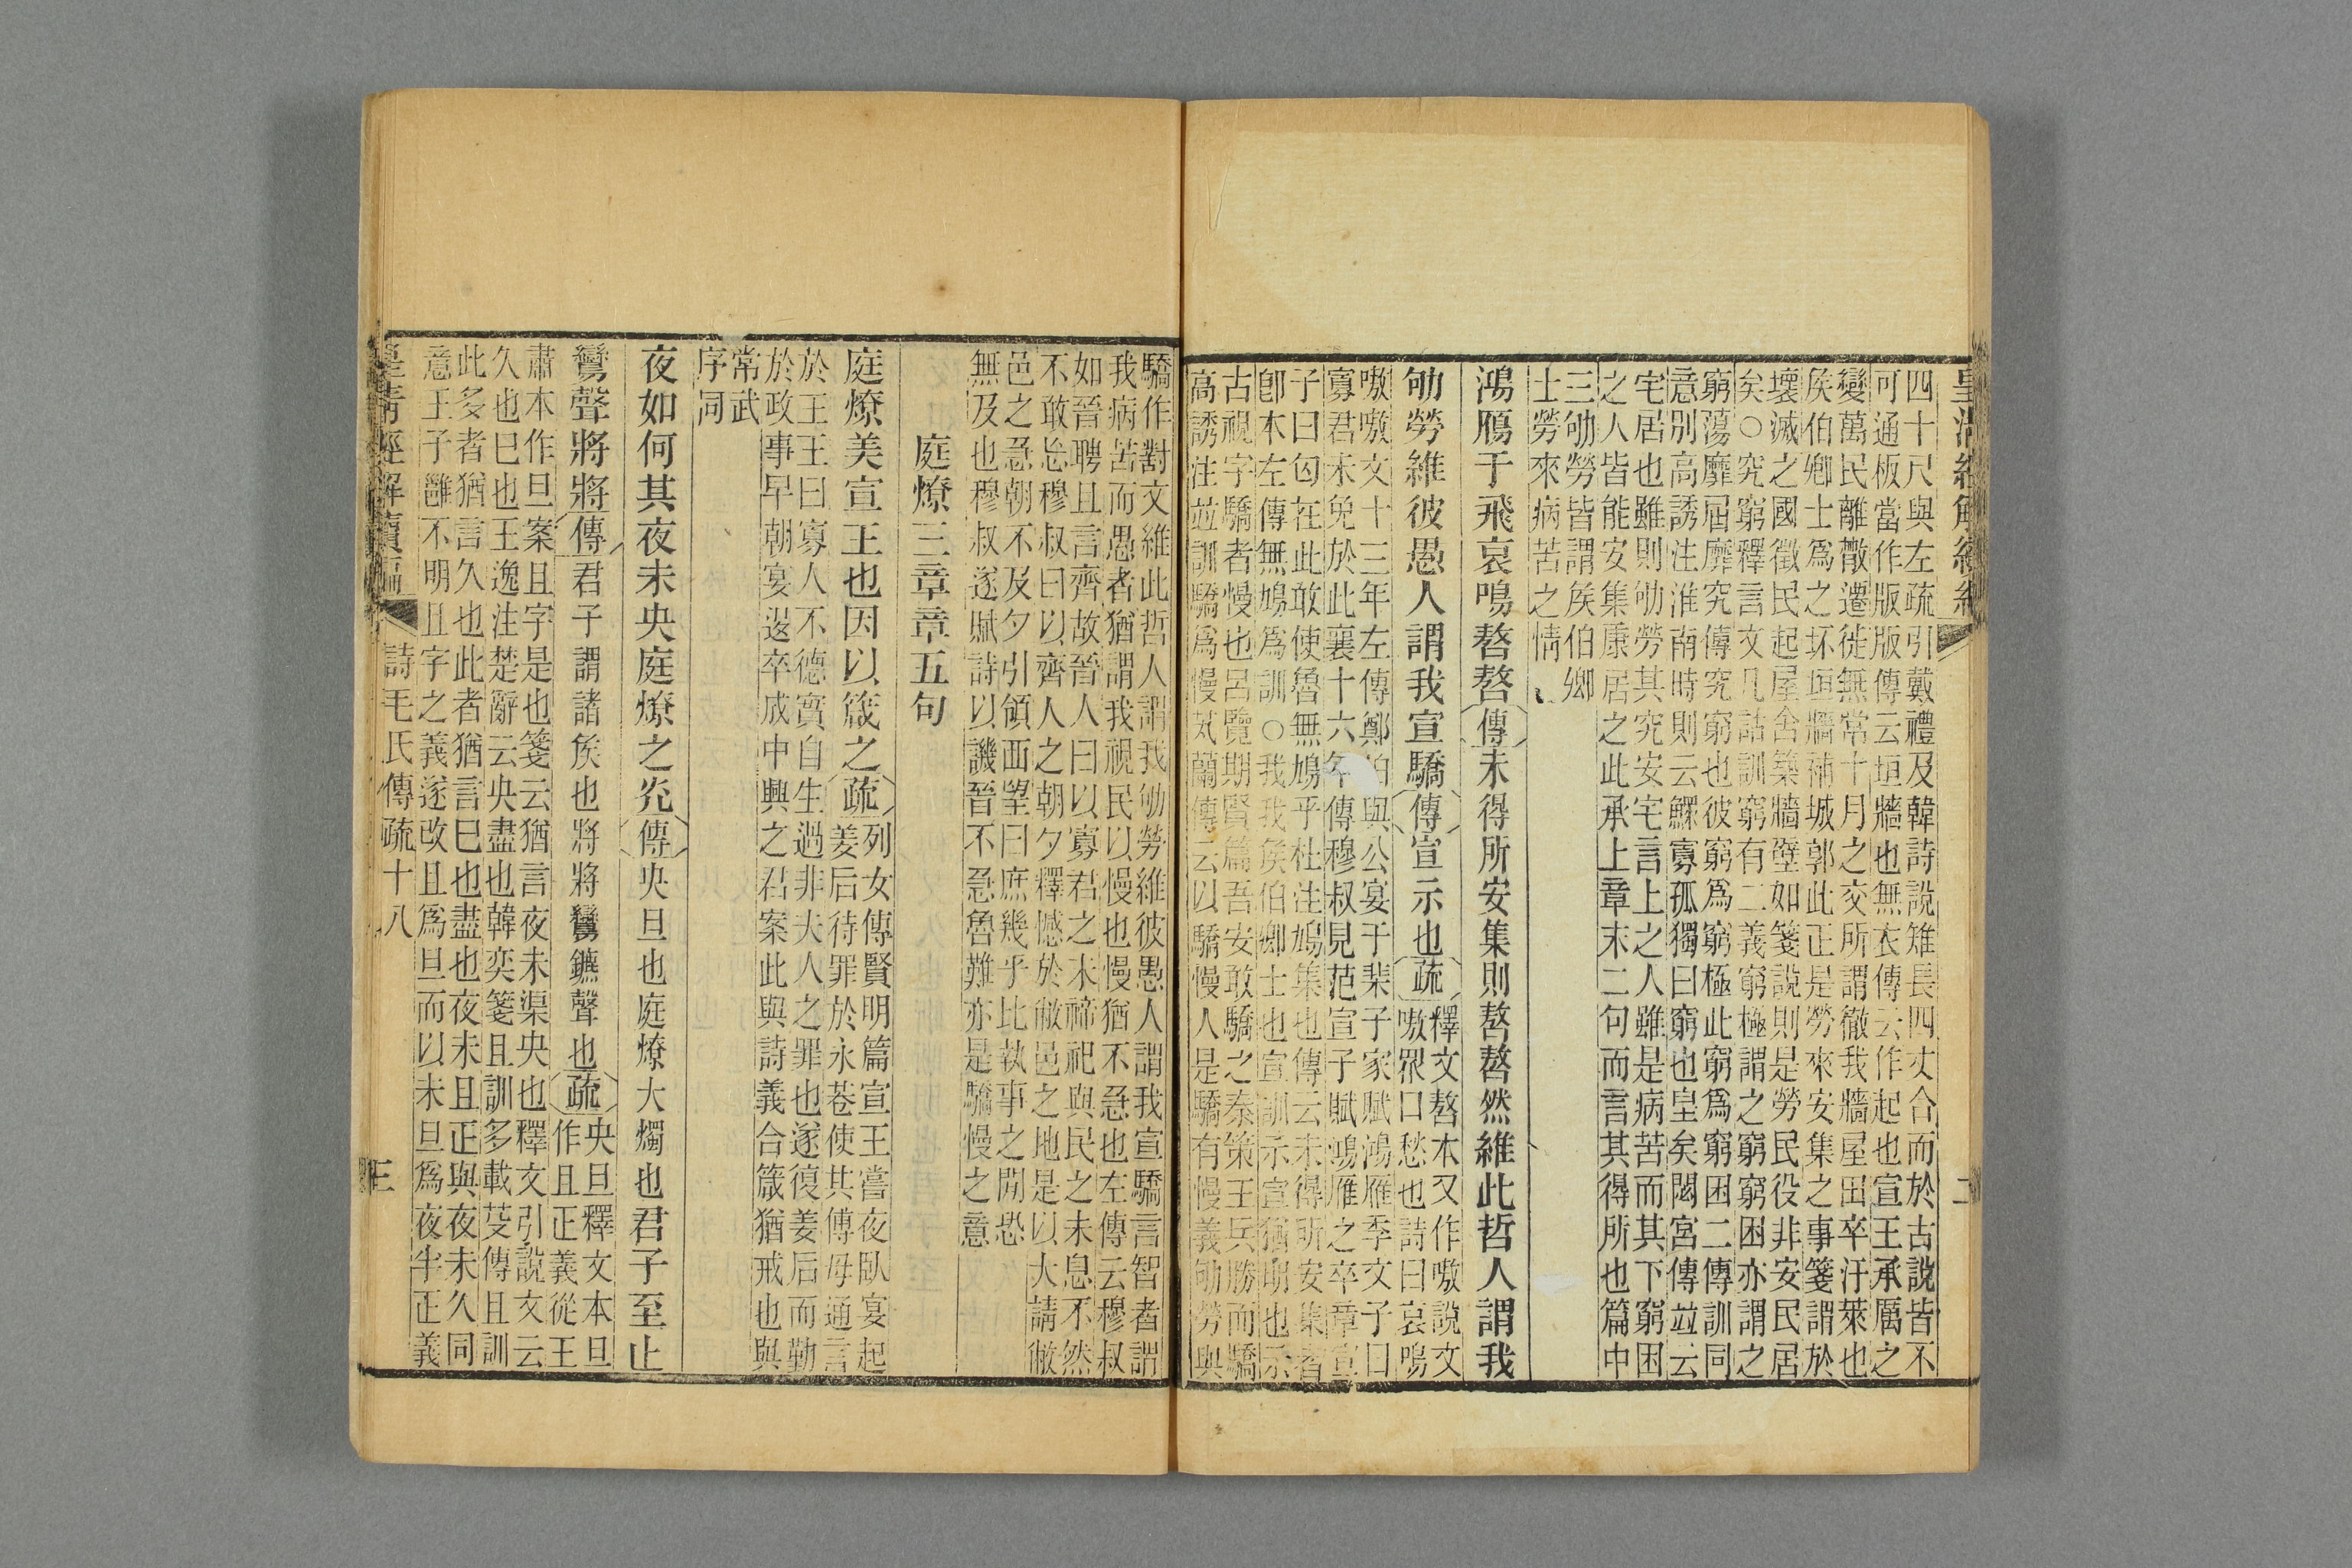 皇清經解續編
二
四十尺與左疏引戴禮及韓詩說雉長四丈合而於古說皆不
可通板當作版版傳云垣牆也無衣傳云作起也宣王承厲之
變萬民離散遷徙無常十月之交所謂徹我牆屋田卒汙萊也
矦伯卿士爲之坏垣牆補城郭此正是勞來安集之事箋謂於
壞滅之國徵民起屋舍築牆壁如箋說則是勞民役非安民居
矣○究窮釋言文凡詁訓窮有二義窮極謂之窮窮困亦謂之
窮蕩靡屆靡究傳究窮也彼窮爲窮極此窮爲窮困二傳訓同
意別高誘注淮南時則云鰥寡孤獨曰窮也皇矣閟宮傳竝云
宅居也雖則劬勞其究安宅言上之人雖是病苦而其下窮困
之人皆能安集康居之此承上章末二句而言其得所也篇中
三劬勞皆謂矦伯卿
士勞來病苦之情
鴻鴈于飛哀鳴嗸嗸傳未得所安集則嗸嗸然維此哲人謂我
劬勞維彼愚人謂我宣驕傳宣示也疏
釋文嗸本又作嗷說文
嗷眾口愁也詩曰哀鳴
嗷嗷文十三年左傳鄭伯與公宴于棐子家賦鴻雁季文子曰
寡君未免於此襄十六年傳穆叔見范宣子賦鴻雁之卒章宣
子曰匄在此敢使魯無鳩乎杜注鳩集也傳云未得所安集者
卽本左傳無鳩爲訓○我我矦伯卿士也宣訓示宣猶明也示
古視字驕者慢也呂覽期賢篇吾安敢驕之秦策王兵勝而驕
高誘注竝訓驕爲慢芄蘭傳云以驕慢人是驕有慢義劬勞與
驕作對文維此哲人謂我劬勞維彼愚人謂我宣驕言智者謂
我病苦而愚者猶謂我視民以慢也慢猶不急也左傳云穆叔
如晉聘且言齊故晉人曰以寡君之未禘祀與民之未息不然
不敢忘穆叔曰以齊人之朝夕釋憾於敝邑之地是以大請敝
邑之急朝不及夕引領西望曰庶幾乎比執事之閒恐
無及也穆叔遂賦詩以譏晉不急魯難亦是驕慢之意
庭燎三章章五句
庭燎美宣王也因以箴之疏
列女傳賢明篇宣王嘗夜臥宴起
姜后待罪於永巷使其傅母通言
於王王曰寡人不德實自生過非夫人之罪也遂復姜后而勤
於政事早朝宴退卒成中興之君案此與詩義合箴猶戒也與
常武
序同
夜如何其夜未央庭燎之光傳央旦也庭燎大燭也君子至止
鸞聲將將傳君子謂諸矦也將將鸞鑣聲也疏
央旦釋文本旦
作且正義從王
肅本作旦案且字是也箋云猶言夜未渠央也釋文引說文云
久也巳也王逸注楚辭云央盡也韓奕箋且訓多載芟傳且訓
此多者猶言久也此者猶言巳也盡也夜未且正與夜未久同
意王子雝不明且字之義遂改且爲旦而以未旦爲夜半正義
皇清經解續編
詩毛氏傳疏十八
三